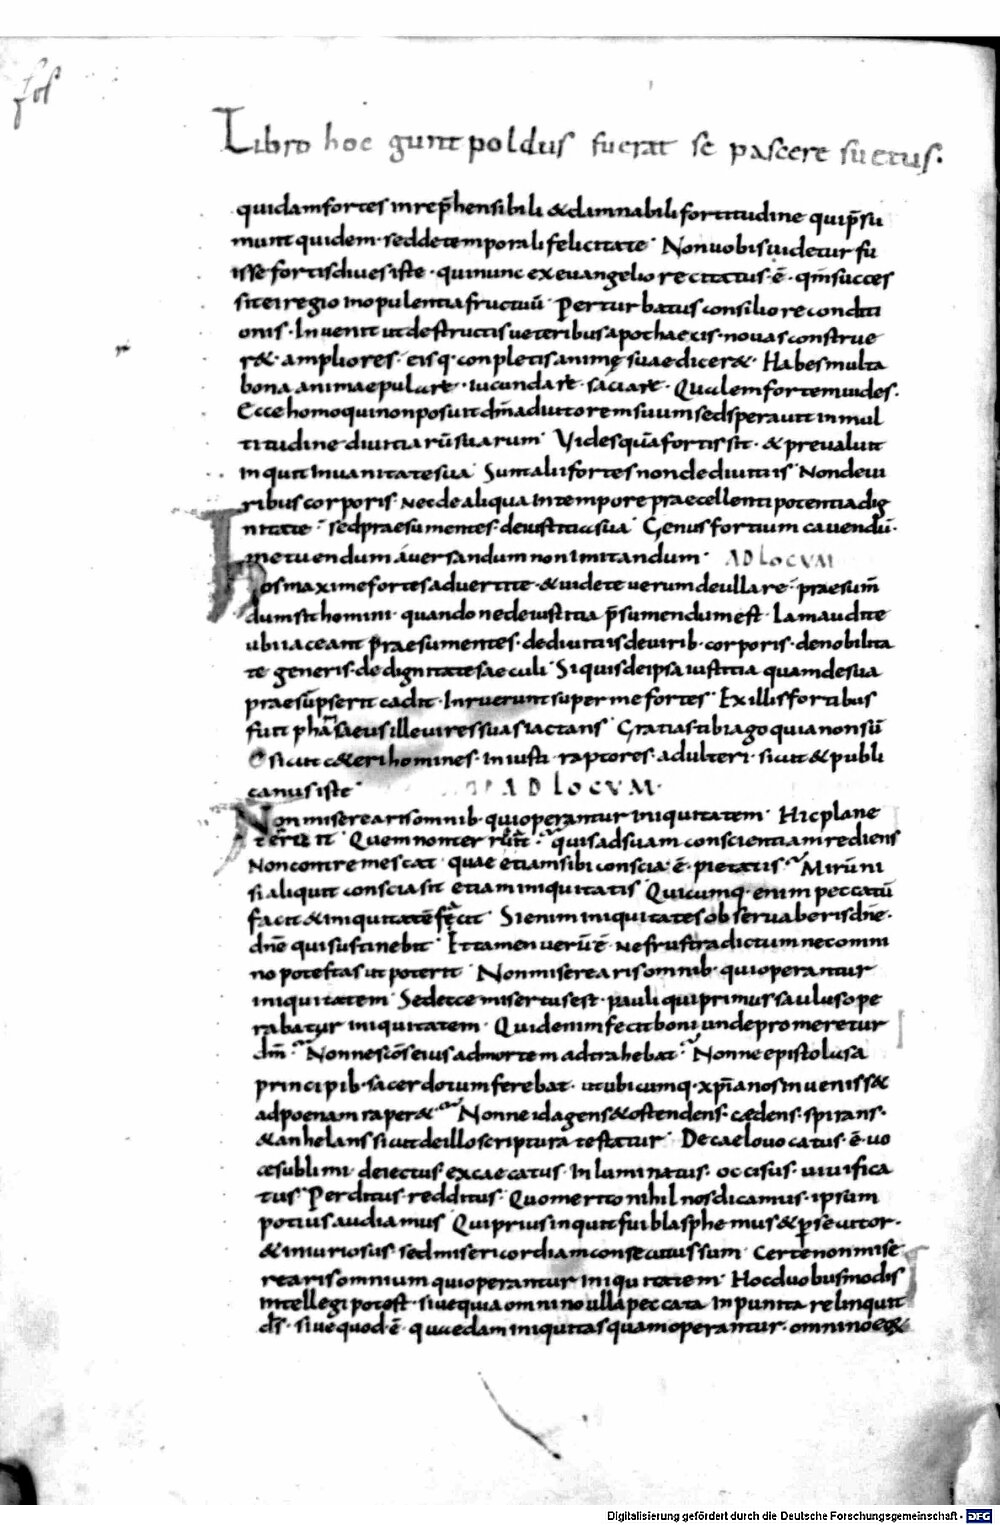 fol
Libro hoc guntpoldus fuerat se pascere suetus.
quidam fortes inrep̄hensibili & damnabili fortitudine qui p̄su
munt quidem · sed de temporali felicitate · Non uobis uidetur fu
isse fortis diues iste · qui nunc ex euangelio recitatus · ē · qm̄ succes
sit ei regio in opulentia fructuū · Perturbatus consilio reconditi
onis · Inuenit ut destructis ueteribus apothaecis · nouas construe
r& · ampliores · eisq · conpletis animę suae dicer& · Habes multa
bona anima epulare · iucundare · saciare · Qualem fortem uides ·
Ecce homo qui non posuit dm̄ adiutorem suum sed sperauit in mul
titudine diuitiarū suarum · Vides quā fortis sit · & preualuit
inquit In uanitate sua · Sunt alii fortes non de diuitiis · Non de ui
ribus corporis · Nec de aliqua In tempore praecellenti potentia dig
nitate · sed praesumentes · de iustitia sua · Genus fortium cauendū ·
metuendum auersandum non Imitandum · AD LOCVM
hos maxime fortes aduertite · & uidete uerum de ulla re · praesum̄
dum sit homini · quando ne de iustitia p̄sumendum est · Iam audite
ubi iaceant praesumentes · de diuitiis de uirib · corporis · de nobilita
te generis · de dignitate saeculi · Si quis de ipsa iustitia quam de sua
praesūpserit cadit · Inruerunt super me fortes · Ex illis fortibus
fuit pharisaeus ille uires suas iactans · Gratias tibi ago quia non sū
sicut c&eri homines · Iniusti · raptores · adulteri · sicut & publi
canus iste · AD LOCVM ·
Non miserearis omnib · qui operantur iniquitatem · Hic plane
terre it · Quem non terrūit · quis ad suam conscientiam rediens
Non contremescat · quae etiam si bi conscia · ē · pietatis · Mirū ni
si aliquit conscia sit etiam iniquitatis · Quicumq · enim peccatū
facit & iniquitatē fecit · Si enim iniquitates obseruaberis dn̄e ·
dn̄e qui sustinebit · Et tamen uerū ē · Ne frustra dictum nec omni
no potestas ut poterit · Non miserearis omnib · qui operantur
iniquitatem · Sed ecce misertus est · pauli qui primus saulus ope
rabatur iniquitatem · Quid enim fecit boni unde promeretur
dm̄ · Nonne scōs eius ad mortem adtrahebat · Nonne epistolas a
principib · sacerdotum ferebat · ut ubicumq · xp̄ianos inueniss&
ad poenam raper& · Nonne id agens & ostendens · cędens · spirans ·
& anhelans sicut de illo scriptura testatur · De caelo uocatus · ē · uo
ce sublimi · deiectus · excaecatus · Inluminatus · occisus · uiuifica
tus · Perditus · redditus · Quo merito nihil nos dicamus · ipsum
potius audiamus · Qui prius inquit fui blasphemus & persecutor ·
& iniuriosus · sed misericordiam consecutus sum · Certe non mise
rearis omnium qui operantur iniquitatem · Hoc duobus modis
intellegi potest · siue quia omnino ulla peccata inpunita relinquit
ds̄ · siue quod · ē · quaedam iniquitas quam operantur · omnino
Digitalisierung gefördert durch die Deutsche Forschungsgemeinschaft - DFG